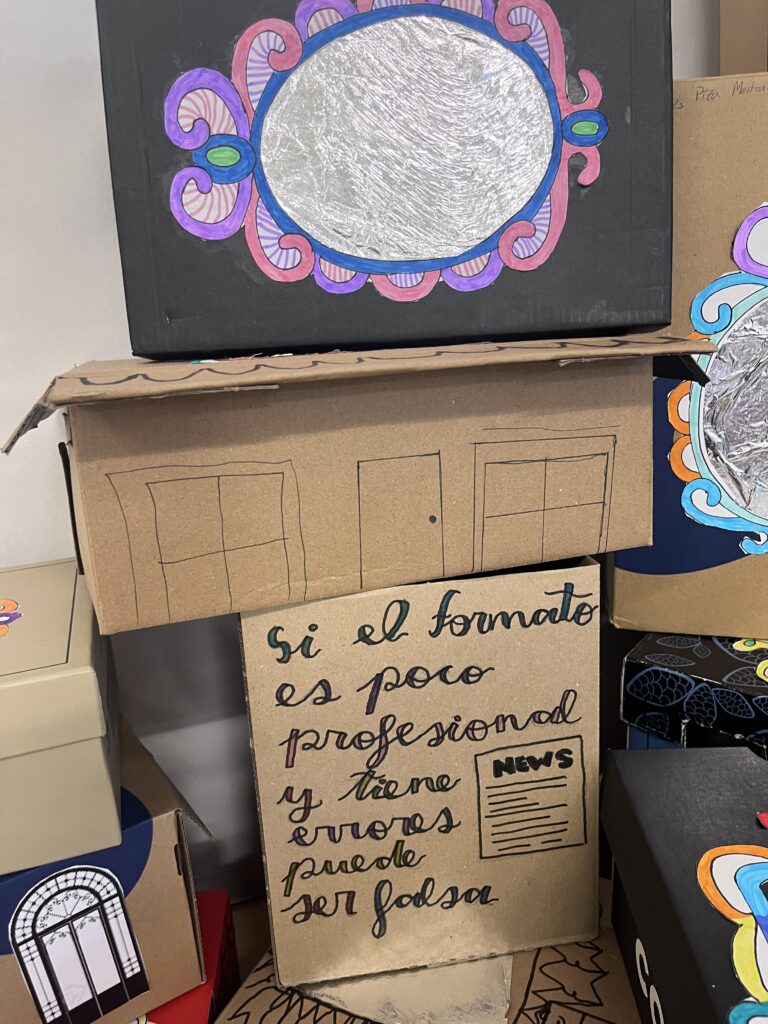 Si el formato
es poco
profesional
y tiene
errores
puede
ser falsa
NEWS